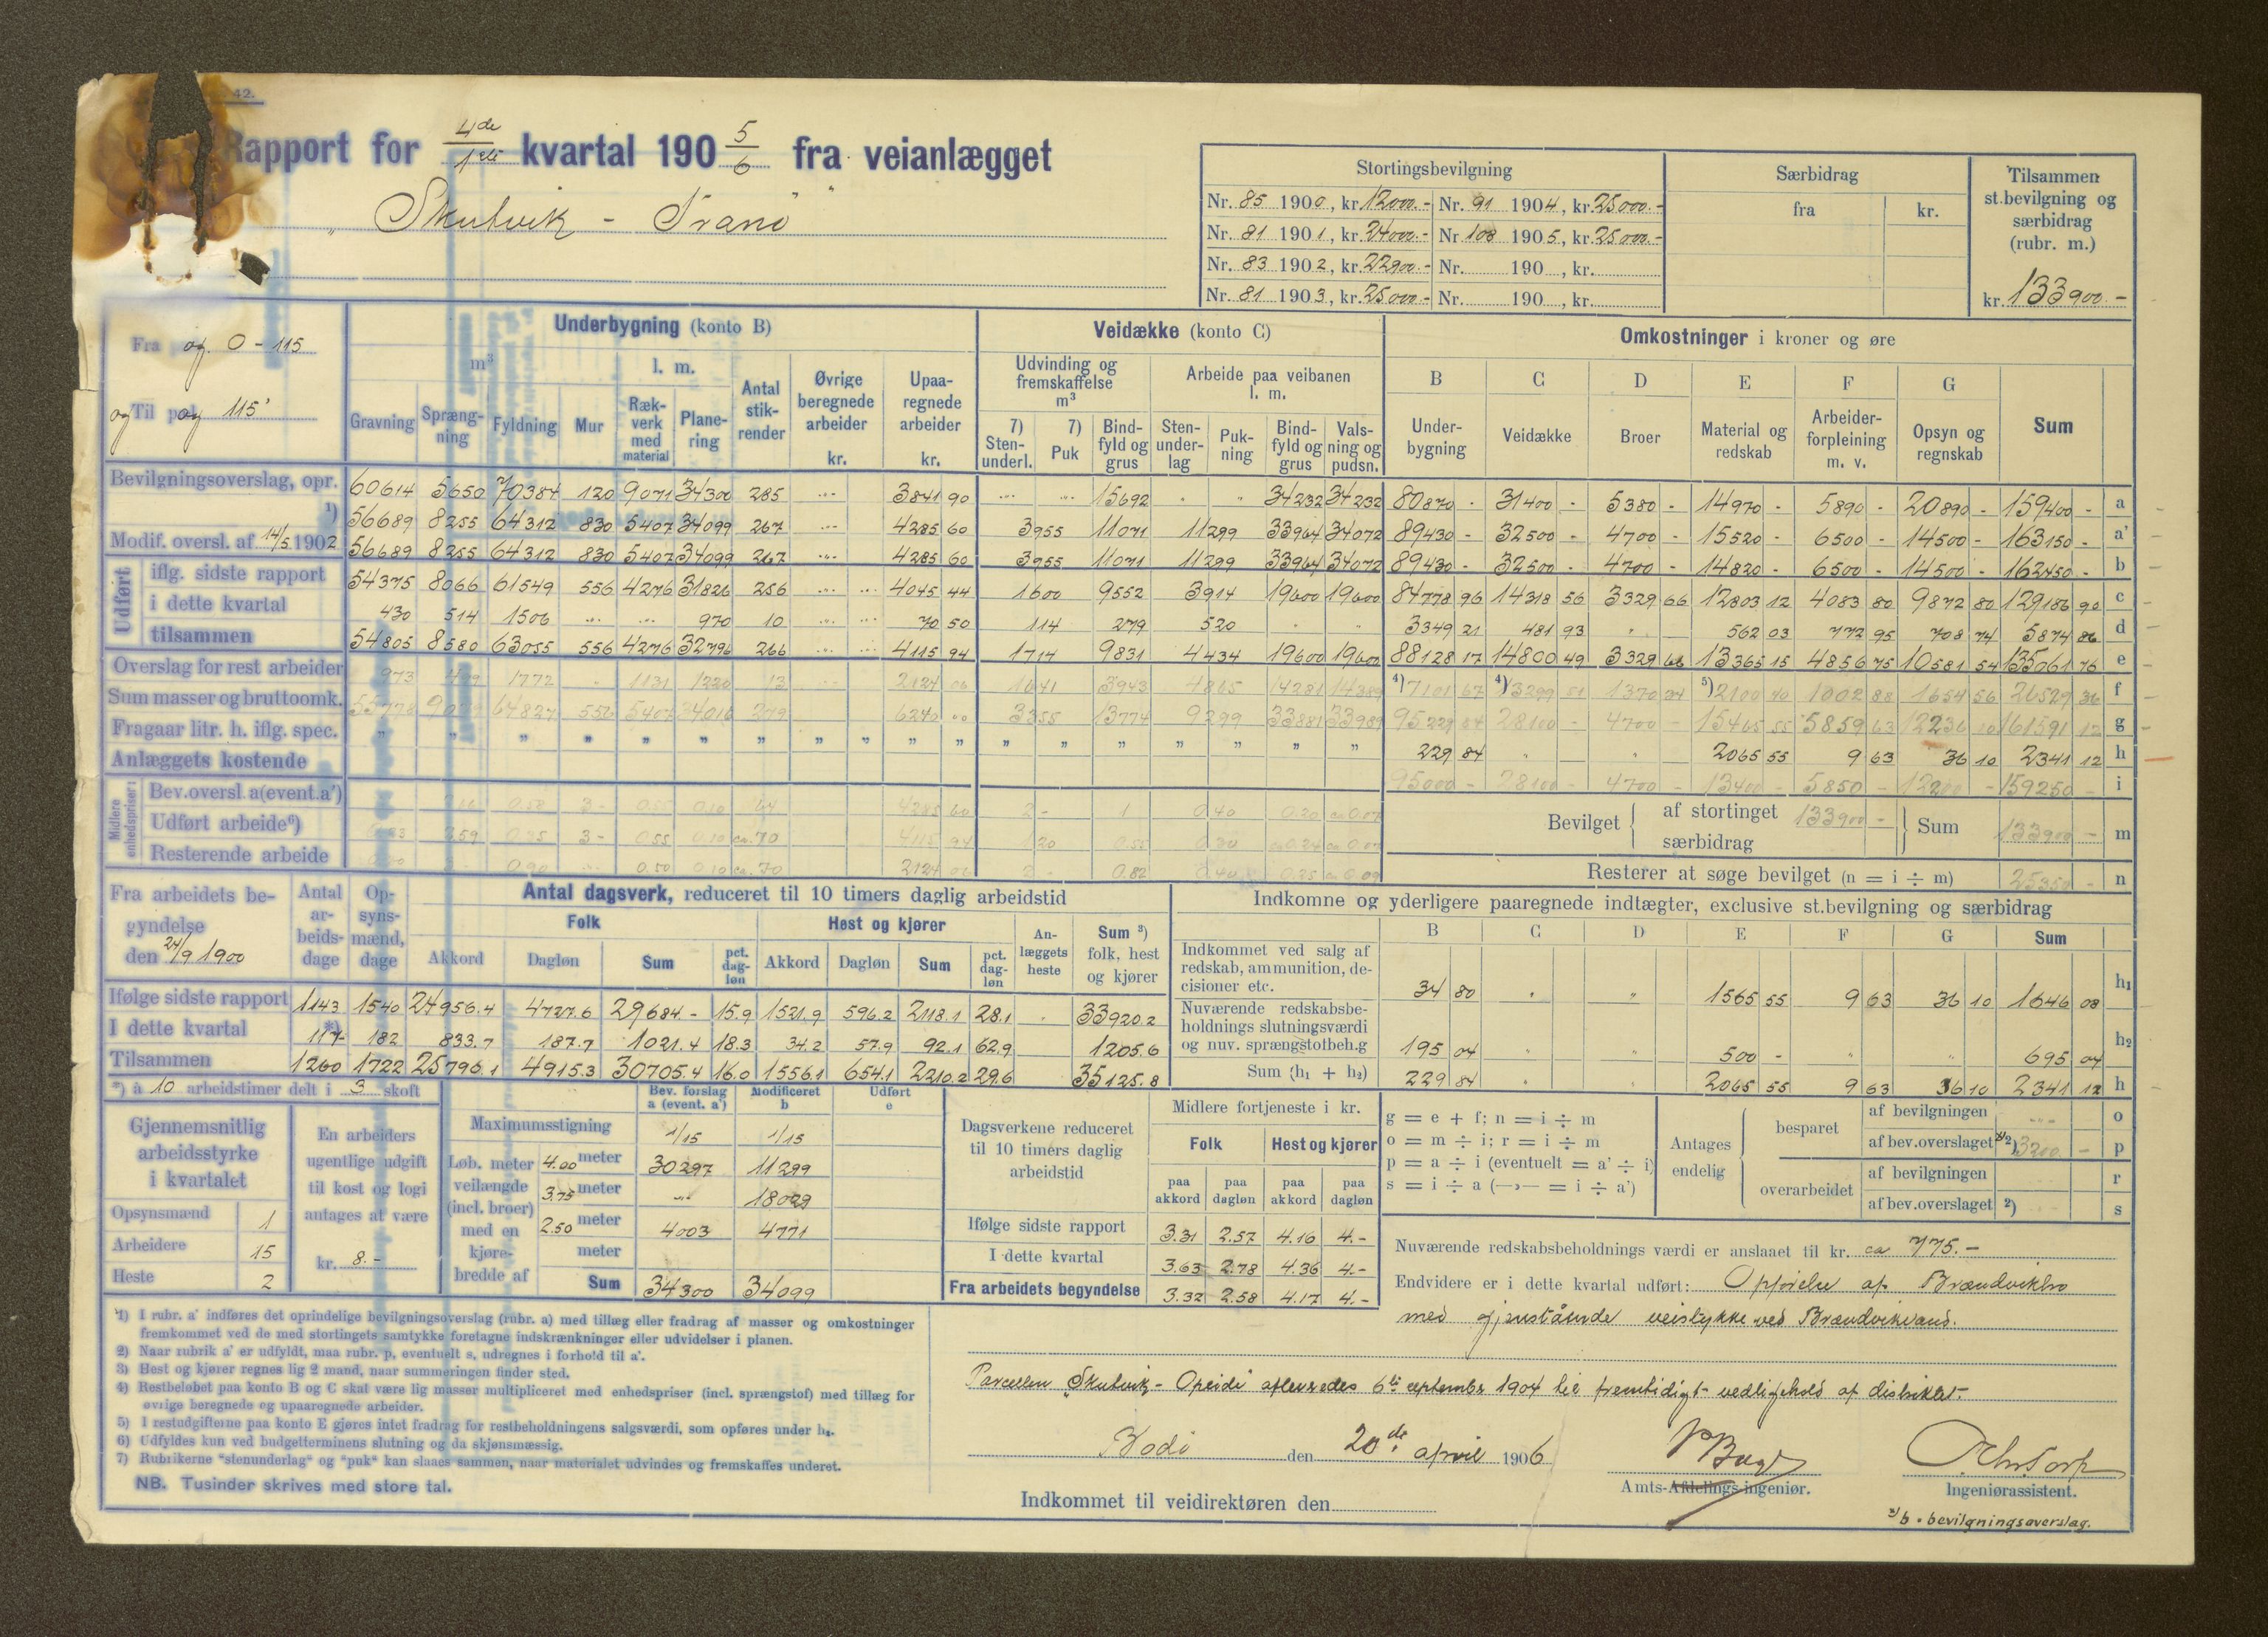 42.
Rapport for 4de/1ste kvartal 190 5/6 fra veianlægget
„Skutvik – Tranö"
Stortingsbevilgning
Nr. 85 1900, kr. 12000.- Nr. 91 1904, kr. 25000.-
Nr. 81 1901, kr. 24000.- Nr. 108 1905, kr. 25000.-
Nr. 83 1902, kr. 22900.- Nr. 190 , kr.
Nr. 81 1903, kr. 25000.- Nr. 190 , kr.
Særbidrag
fra kr.
Tilsammen
st.bevilgning og
særbidrag
(rubr. m.)
kr. 133900.-
Fra 0 - 115
og Til 115
Underbygning (konto B)
m³ l. m.
Gravning Sprængning Fyldning Mur Rækverk med material Planering Antal stikrender Øvrige beregnede arbeider kr. Upaaregnede arbeider kr.
Veidække (konto C)
Udvinding og fremskaffelse m³
Arbeide paa veibanen l. m.
7) Stenunderl. 7) Puk Bindfyld og grus Stenunderlag Pukning Bindfyld og grus Valsning og pudsn.
Omkostninger i kroner og øre
B C D E F G Sum
Underbygning Veidække Broer Material og redskab Arbeiderforpleining m. v. Opsyn og regnskab
Bevilgningsoverslag, opr. 60614 5650 70384 120 9071 34300 285 ... 3841 90 ... ... 15692 " " 34232 34232 80870 - 31400 - 5380 - 14970 - 5890 - 20890 - 159400 - a
1) 56689 8255 64312 830 5407 34099 267 ... 4285 60 3955 11071 11299 33964 34072 89430 - 32500 - 4700 - 15520 - 6500 - 14500 - 163150 - a'
Modif. oversl. af 14/5 1902 56689 8255 64312 830 5407 34099 267 ... 4285 60 3955 11071 11299 33964 34072 89430 - 32500 - 4700 - 14820 - 6500 - 14500 - 162450 - b
Udført
iflg. sidste rapport 54375 8066 61549 556 4276 31826 256 ... ... 4045 44 1600 9552 3914 19600 19600 84778 96 14318 56 3329 66 12803 12 4083 80 9872 80 129186 90 c
i dette kvartal 430 514 1506 ... ... 970 10 ... ... 70 50 114 279 520 " " 3349 21 481 93 " 562 03 772 95 708 74 5874 86 d
tilsammen 54805 8580 63055 556 4276 32796 266 ... ... 4115 94 1714 9831 4434 19600 19600 88128 17 14800 49 3329 66 13365 15 4856 75 10581 54 135061 76 e
Overslag for rest arbeider 973 499 1772 - 1131 1220 13 2124 06 1641 3943 4865 14281 14389 4) 7101 67 4) 13299 51 1370 34 5) 2100 40 1002 88 1654 56 26529 36 f
Sum masser og bruttoomk. 55778 9079 64827 556 5407 34016 279 6240 00 3355 13774 9299 33881 33989 95229 84 28100 - 4700 - 15465 55 5859 63 12236 10 161591 12 g
Fragaar litr. h. iflg. spec. " " " " " " " " " " " " " " " " " " 229 84 " " 2065 55 9 63 36 10 2341 12 h
Anlæggets kostende 95000 - 28100 - 4700 - 13400 - 5850 - 12200 - 159250 - i
Midlere enhedspriser i
Bev.oversl.a(event.a') 0.58 3 - 0.55 0.10 64 4285 60 2 - 1 0.40 0.20 ca 0.07
Udført arbeide⁶) 2.59 0.35 3 - 0.55 0.10 ca. 70 4115 94 1 20 0.55 0.30 ca 0.24 ca 0.07
Resterende arbeide 0.90 ... 0.50 0.10 ca. 70 2124 06 2 - 0.82 0.40 0.25 ca 0.09
Bevilget af stortinget 133900 - Sum 133900 - m
særbidrag
Resterer at søge bevilget (n = i ÷ m) 25350 - n
Fra arbeidets begyndelse
den 24/9 1900
Antal arbeidsdage Opsynsmænd, dage
Antal dagsverk, reduceret til 10 timers daglig arbeidstid
Folk Hest og kjører
Akkord Dagløn Sum pct. dagløn Akkord Dagløn Sum pct. dagløn Anlæggets heste Sum ³) folk, hest og kjører
Ifølge sidste rapport 1143 1540 24956.4 4727.6 29684 - 15.9 1521.9 596.2 2118.1 28.1 . 33920.2
I dette kvartal 117 *) 182 833.7 187.7 1021.4 18.3 34.2 57.9 92.1 62.9 1205.6
Tilsammen 1260 1722 25790.1 4915.3 30705.4 16.0 1556.1 654.1 2210.2 29.6 35125.8
*) à 10 arbeidstimer delt i 3 skoft
Indkomne og yderligere paaregnede indtægter, exclusive st.bevilgning og særbidrag
B C D E F G Sum
Indkommet ved salg af
redskab, ammunition, de-
cisioner etc. 34 80 " " 1565 55 9 63 36 10 1646 08 h₁
Nuværende redskabsbe-
holdnings slutningsværdi
og nuv. sprængstofbeh.g 195 04 " " 500 - " " 695 04 h₂
Sum (h₁ + h₂) 229 84 " " 2065 55 9 63 36 10 2341 12 h
Gjennemsnitlig
arbeidsstyrke
i kvartalet
Opsynsmænd 1
Arbeidere 15
Heste 2
En arbeiders
ugentlige udgift
til kost og logi
antages at være
kr. 8.-
Bev. forslag a (event. a') Modificeret b Udført e
Maximumsstigning 1/15 1/15
Løb. meter veilængde (incl. broer) med en kjørebredde af
4.00 meter 30297 11299
3.75 meter ... 18029
2.50 meter 4003 4771
meter
Sum 34300 34099
Dagsverkene reduceret
til 10 timers daglig
arbeidstid
Midlere fortjeneste i kr.
Folk Hest og kjører
paa akkord paa dagløn paa akkord paa dagløn
Ifølge sidste rapport 3.31 2.57 4.16 4.-
I dette kvartal 3.63 2.78 4.36 4.-
Fra arbeidets begyndelse 3.32 2.58 4.17 4.-
g = e + f; n = i ÷ m
o = m ÷ i; r = i ÷ m
p = a ÷ i (eventuelt = a' ÷ i)
s = i ÷ a (—›— = i ÷ a')
Antages endelig
besparet af bevilgningen ... o
af bev.overslaget *²) 3200 - p
overarbeidet af bevilgningen r
af bev.overslaget ²) s
Nuværende redskabsbeholdnings værdi er anslaaet til kr. ca 775.-
Endvidere er i dette kvartal udført: Opførelse af Brændvikbro
med gjenstående veistykke ved Brændvikvand.
Parcellen „Skutvik - Opeidi" afleveredes 6te september 1904 til fremtidigt vedligehold af distriktet.
Bodö den 20de april 1906
Amts-Afdelings-ingeniør.
Ingeniørassistent.
Indkommet til veidirektøren den
*) b = bevilgningsoverslag.
1) I rubr. a' indføres det oprindelige bevilgningsoverslag (rubr. a) med tillæg eller fradrag af masser og omkostninger
fremkommet ved de med stortingets samtykke foretagne indskrænkninger eller udvidelser i planen.
2) Naar rubrik a' er udfyldt, maa rubr. p, eventuelt s, udregnes i forhold til a'.
3) Hest og kjører regnes lig 2 mand, naar summeringen finder sted.
4) Restbeløbet paa konto B og C skal være lig masser multipliceret med enhedspriser (incl. sprængstof) med tillæg for
øvrige beregnede og upaaregnede arbeider.
5) I restudgifterne paa konto E gjøres intet fradrag for restbeholdningens salgsværdi, som opføres under h₂.
6) Udfyldes kun ved budgetterminens slutning og da skjønsmæssig.
7) Rubrikerne "stenunderlag" og "puk" kan slaaes sammen, naar materialet udvindes og fremskaffes underet.
NB. Tusinder skrives med store tal.